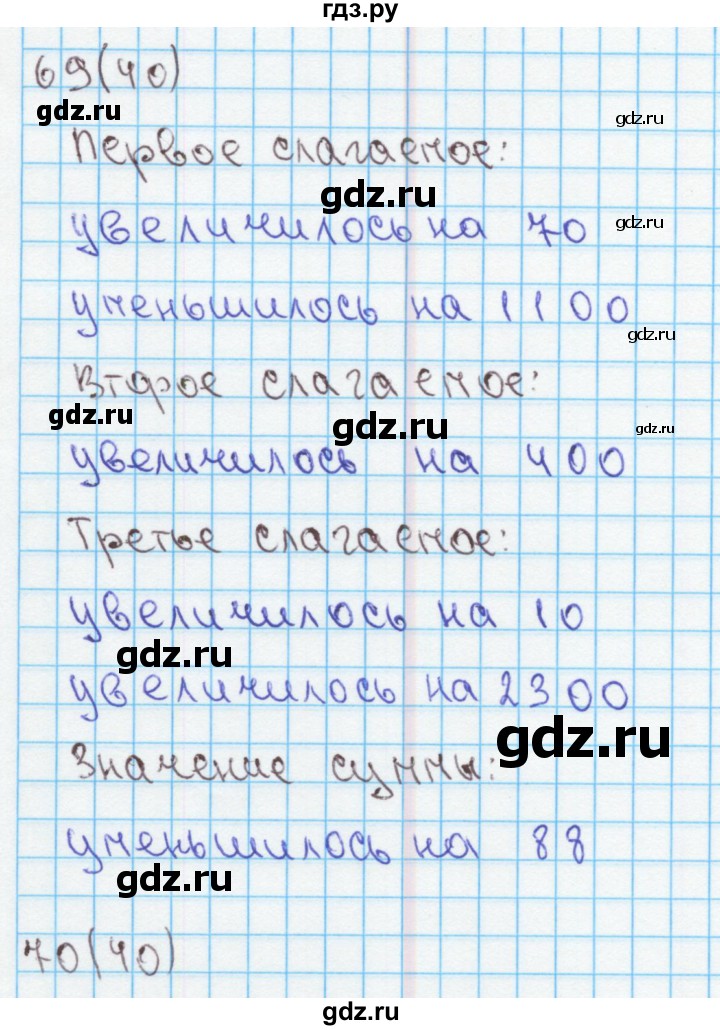 гдз.ру
69(40)
gdz.ru
gdz.ru
Первое слагаемое:
gdz.ru
увеличилось на 70
gdz.ru
уменьшилось на 1100
gdz.ru
Второе слагаемое:
gdz.ru
gdz.ru
gdz.ru
увеличилось на 400
Третье слагаемое:
увеличилось на 10
gdz.ru
увеличилось на 2300
gdz.ru
Значение суммы:
уменьшилось на 88
gdz.ru
70(40)
gdz.ru